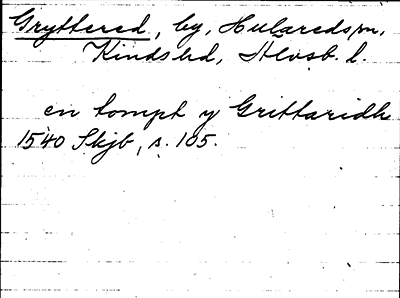 Gryttered, by, Hulareds sn,
Kinds hd, Älvsb. l.
en tompt y Grittaridh
1540 Skjb, s. 105.